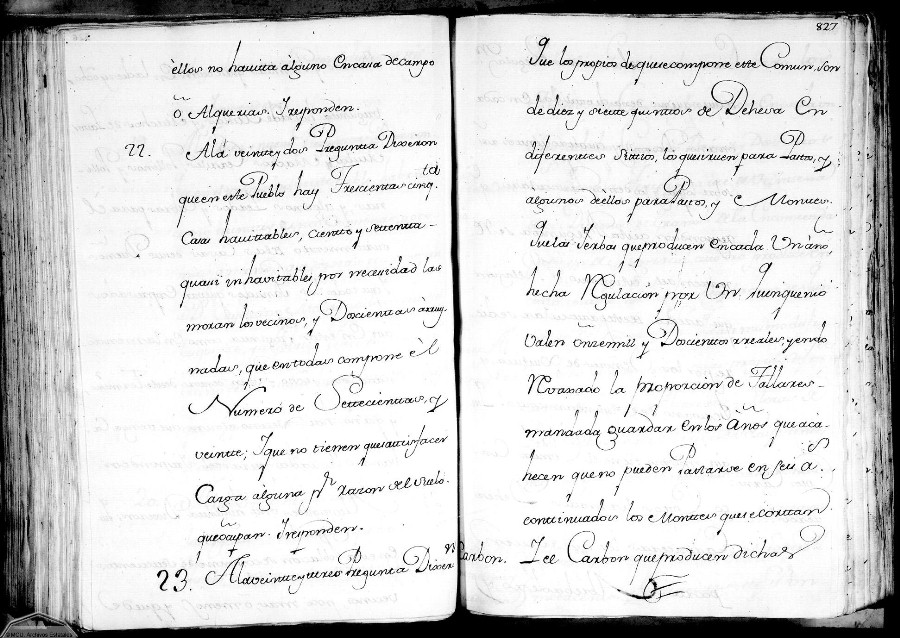 ēllos no havita alguno En casa de campo
o, Alquerias. Y responden.
22. A la veinte y dos Pregunta Dixeron
que en este Pueblo hay Trescientas cinqta
Casas havitables, ciento y settenta
quasi inhavitables por necesidad las
moran los vecinos, y Doscientas arruy
nadas, que en todas compone el
Numero de Settecientas, y
veinte; Y que no tienen que satisfacer
Carga alguna pr razon del suelo
que ocupan. Y responden.
23. A la veinte y tres Pregunta Dixeron
827
Que los propios de que se compone este Comun, son
de diez y siette quintos de Dehesa En
diferentes Sitios, los que sirven para Pasto, y
algunos de ellos para Pasto, y Monttes.
Que las Yerbas que producen en cada Un año
hecha Regulación por Un quinquenio
Valen onze mill y Doscientos rreales, y en lo
la proporcion de Tallares
mandada guardar en los Años que aca
hecen que no pueden Pastarse en seis as.
continuados los Monttes que se corttan.
Carbon. Y ee Carbon que producen dichas
©MCD. Archivos Estatales